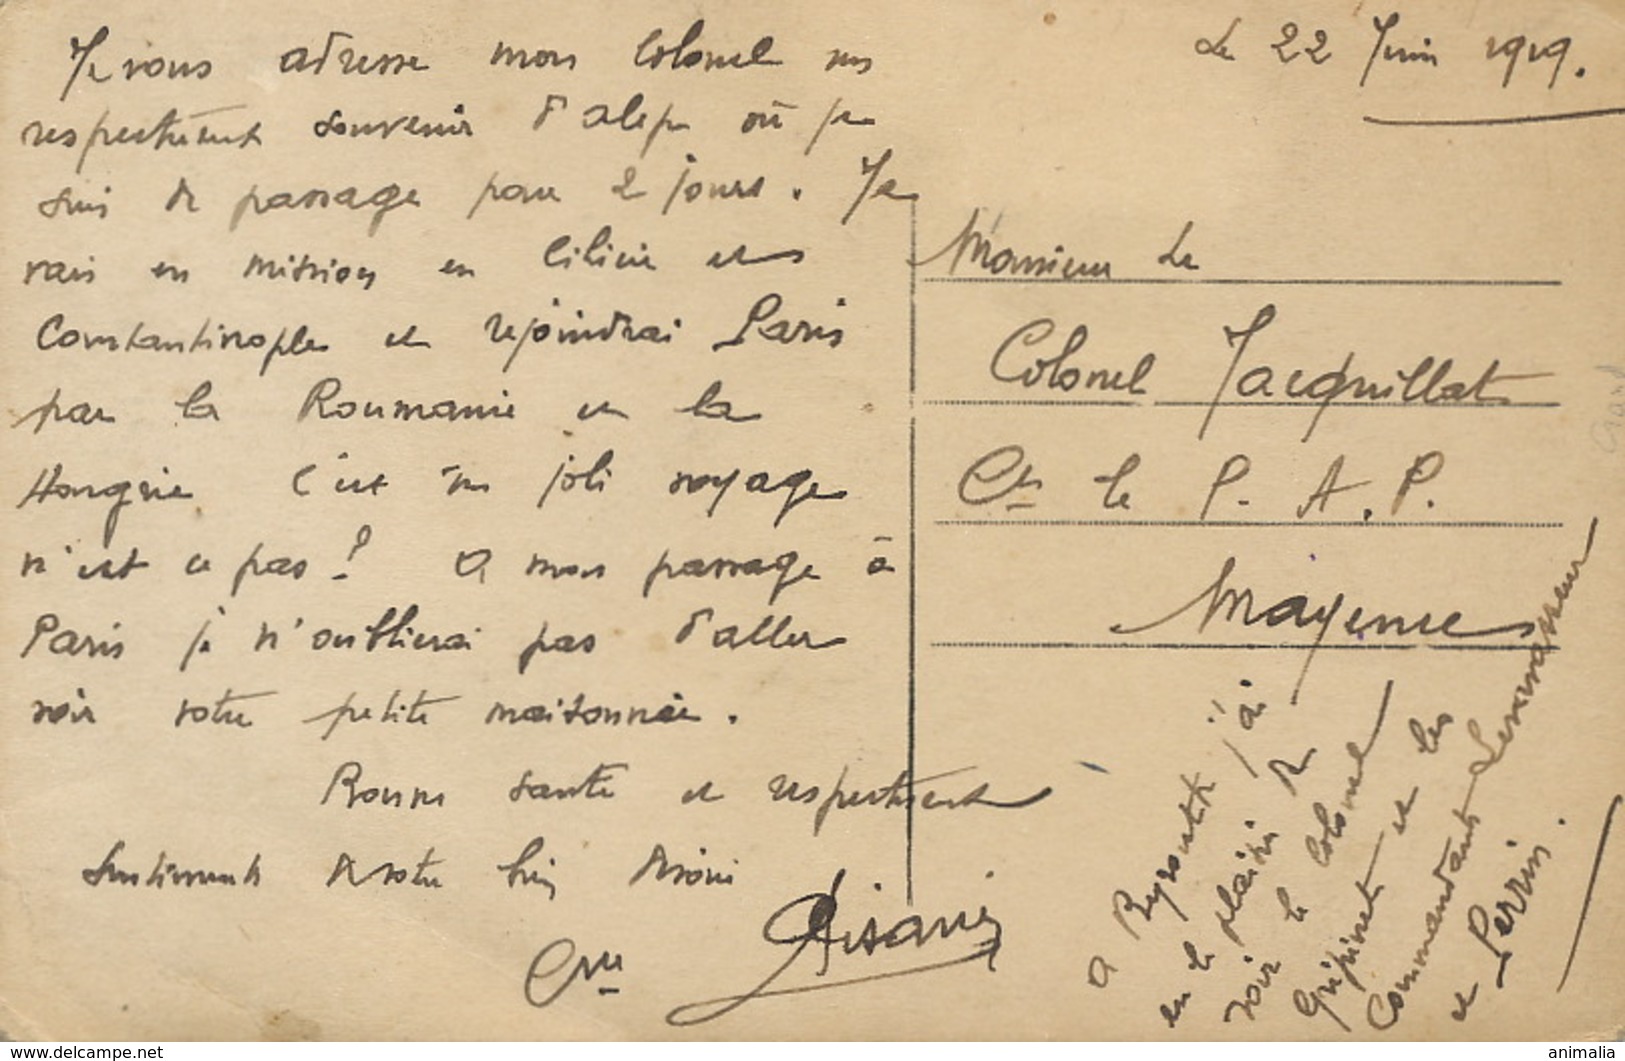 Je vous adresse mon Colonel un
respectueux souvenir d'alep où je
suis de passage pour 2 jours. Je
vais en mission en Cilicie et à
Constantinople et rejoindrai Paris
par la Roumanie et la
Hongrie C'est un joli voyage
n'est ce pas! A mon passage à
Paris je n'oublierai pas d'aller
voir votre petite maisonnée.
Bonne santé et respectueux
sentiments de votre bien dévoué
Pisani
Le 22 Juin 1919.
Monsieur Le
Colonel Jacquillat
Ct le P. A. P.
Mayence
A Beyrouth j'ai
eu le plaisir de
voir le Colonel
Grépinet et les
Commandants Levavasseur
et Perrin.
www.delcampe.net
animalia